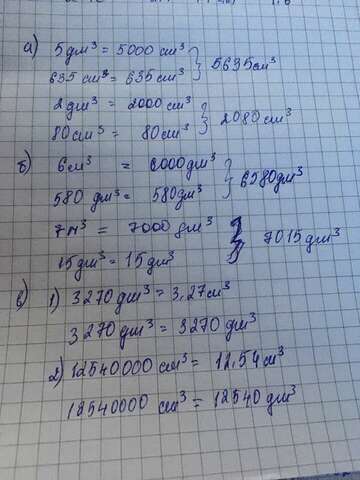 а) 5 дм³ = 5000 см³ } 5635 см³
635 см³ = 635 см³
2 дм³ = 2000 см³ } 2080 см³
80 см³ = 80 см³
б) 6 м³ = 6000 дм³ } 6580 дм³
580 дм³ = 580 дм³
7 м³ = 7000 дм³ } 7015 дм³
15 дм³ = 15 дм³
в) 1) 3270 дм³ = 3,27 м³
3270 дм³ = 3270 дм³
2) 12540000 см³ = 12,54 м³
12540000 см³ = 12540 дм³